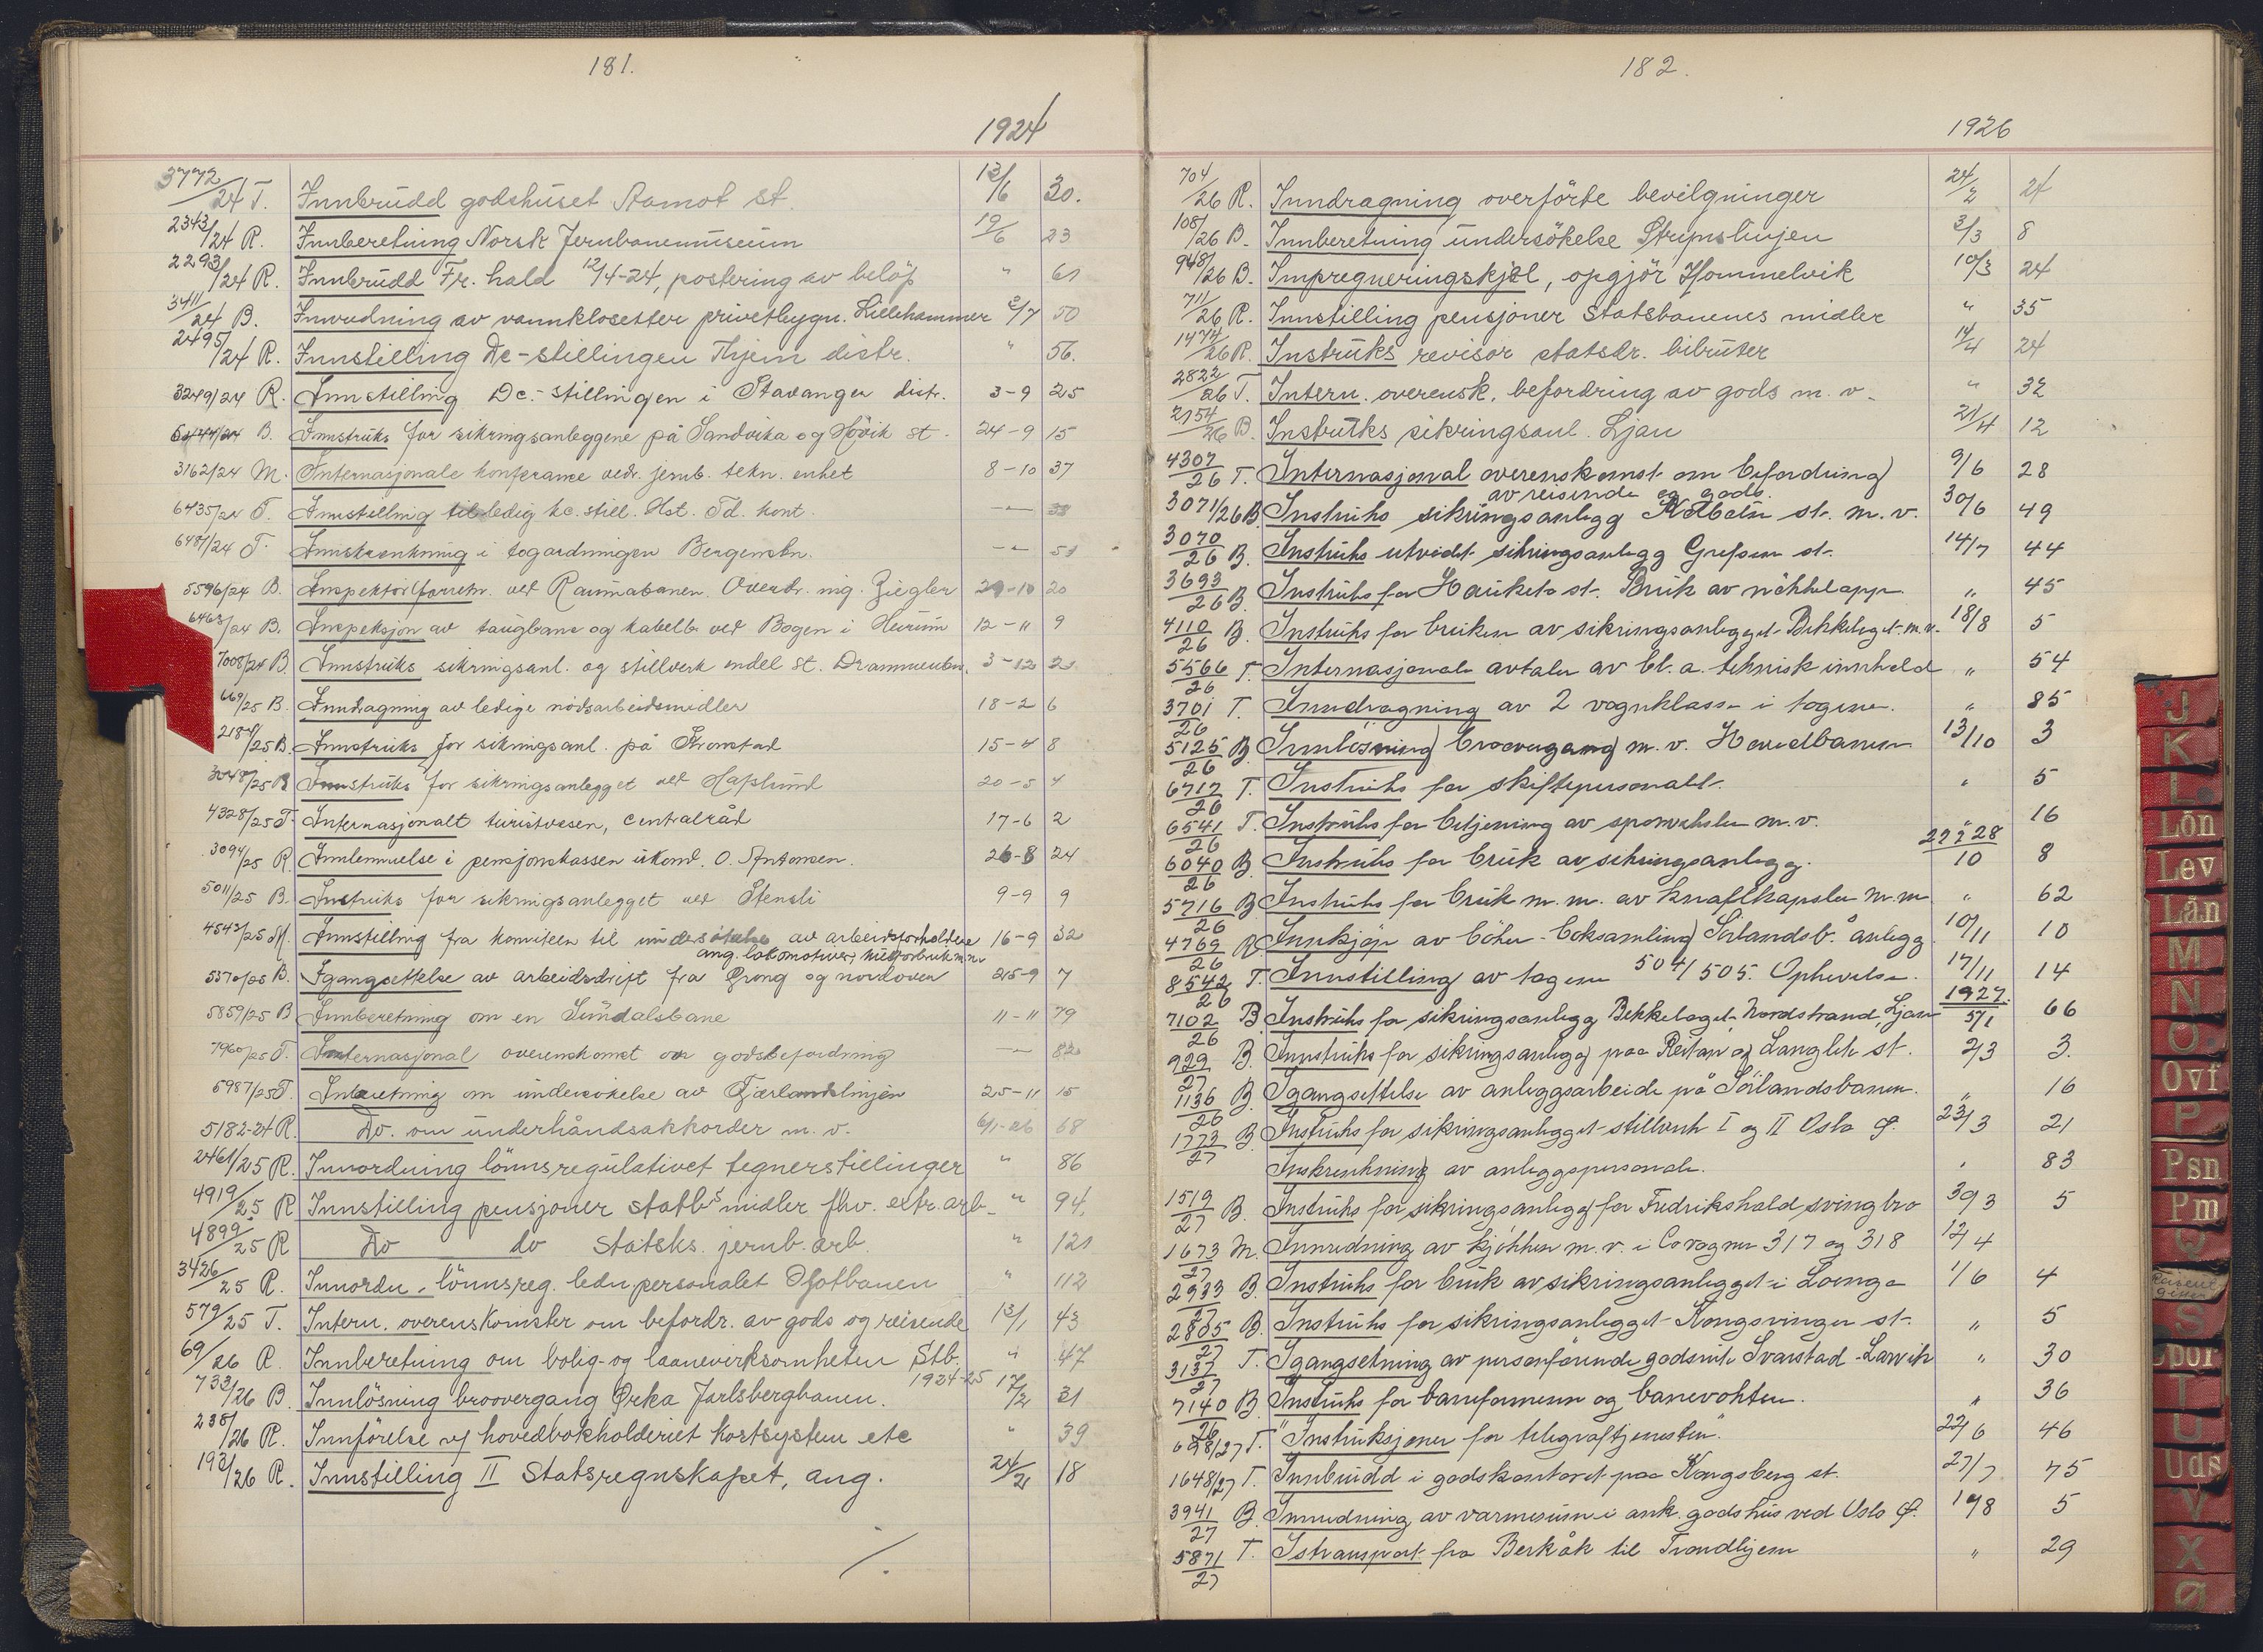 181.
1924
3772/24 T. Innbrudd godshuset Aamot st. 12/6 30.
2343/24 R. Innberetning Norsk Jernbanemuseum 19/6 23
2293/24 R. Innbrudd Fr. hald 12/4-24, postering av beløp " 61
3411/24 B. Innredning av vannklosetter privetbygn. Lillehammer 2/7 50
2495/24 R. Innstilling Dc-stillingen Thjem distr. " 56.
3249/24 R. Innstilling Dc.-stillingen i Stavanger distr. 3-9 25
B. Innstruks for sikringsanleggene på Sandvika og Høvik st. 24-9 15
3162/24 M. Internasjonale konferanse vedr. jernb. tekn. enhet 8-10 37
6435/24 T. Innstilling til ledig kc. still. Hst. Td. kont. -"- 38
6481/24 T. Innskrenkning i togordningen Bergensbn. -"- 51
5596/24 B. Inspektørforretn. ved Raumabanen. Overtr. ing. Ziegler 29-10 20
6463/24 B. Inspeksjon av taugbane og kabelb. ved Bogen i Hurum 12-11 9
7008/24 B. Innstruks sikringsanl. og stillverk endel st. Drammenbn. 3-12 21
669/25 B. Inndragning av ledige nødsarbeidsmidler 18-2 6
2184/25 B. Innstruks for sikringsanl. på Kronstad 15-4 8
3048/25 B Innstruks for sikringsanlegget ved Haslund 20-5 4
4328/25 T. Internasjonalt turistvesen, centralråd 17-6 2
3094/25 R. Innlemmelse i pensjonskassen ukond. O. Antonsen. 26-8 24
5011/25 B. Instruks for sikringsanlegget ved Stensli 9-9 9
4543/25 M. Innstilling fra komiteen til undersøkelse av arbeidsforholdene 16-9 32
ang. lokomotiver,
5370/25 B. Igangsettelse av arbeidsdrift fra Grong og nordover 25-9 7
5859/25 B Innberetning om en Sundalsbane 11-11 79
7960/25 T. Internasjonal overenskomst om godsbefordring -"- 82
5987/25 T. Inberetning om undersøkelse av Fjærlandslinjen 25-11 15
5182-24 R. Do. om underhåndsakkorder m. v. 6/1-26 68
2461/25 R. Innordning lönnsregulativet tegnerstillinger " 86
4919/25 R Innstilling pensjoner statbs midler fhv. ektr. arb. " 94.
4899/25 R Do do Statsks. jernb. arb. " 121
3426/25 R. Innordn. lönnsreg. ledn.personalet Ofotbanen " 112
579/25 T. Intern. overenskomster om befordr. av gods og reisende 13/1 43
69/26 R. Innberetning om bolig- og laanevirksomheten Stb. " 47
1924-25
733/26 B. Innlösning broovergang Ørka Jarlsbergbanen. 17/2 21
238/26 R. Innförelse vf hovedbokholderiet kortsystem etc " 39
193/26 R. Innstilling II Statsregnskapet, ang. 24/2 18
182.
1926
704/26 R. Inndragning overförte bevilgninger 24/2 21
108/26 B. Innberetning undersökelse Strynslinjen 3/3 8
948/26 B. Impregneringskjel, opgjör Hommelvik 10/3 24
711/26 R. Innstilling pensjoner Statsbanenes midler " 35
1474/26 R. Instruks revisor statsdr. bilruter 14/4 24
2822/26 T. Intern. overensk. befordring av gods m. v. " 32
2154/26 B Instruks sikringsanl. Ljan 21/4 12
4307/26 T. Internasjonal overenskomst om befordring 9/6 28
av reisende og gods.
3071/26 B. Instruks sikringsanlegg Kolbotn st. m. v. 30/6 49
3070/26 B. Instruks utvidet sikringsanlegg Grefsen st. 14/7 44
3693/26 B. Instruks for Hauketo st. Bruk av nökkelapp. " 45
4110/26 B. Instruks for bruken av sikringsanlegget Bekkelaget m.v. 18/8 5
5566/26 T. Internasjonale avtaler av bl. a. teknisk innhold " 54
3701/26 T. Inndragning av 2 vognklasse i togene. " 85
5125/26 B Innlösning broovergang m. v. Hovedbanen 13/10 3
6717/26 T. Instruks for skiftepersonalet. " 5
6541/26 T. Instruks for betjening av sporveksler m. v. " 16
6040/26 B. Instruks for bruk av sikringsanlegg. 27/10 8
5716/26 B Instruks for bruk m. m. av knallkapsler m. m. " 62
4769/26 B. Innkjöp av böker - boksamling Sörlandsb. anlegg 10/11 10
8542/26 T. Innstilling av togene 504/505. Ophevelse. 17/11 14
1927.
7102/26 B Instruks for sikringsanlegg Bekkelaget Nordstrand Ljan 5/1 66
929/27 B. Innstruks for sikringsanlegg paa Reitan og Langlete st. 2/3 3.
1136/26 B. Igangsettelse av anleggsarbeide på Sörlandsbanen. " 16
1773/27 B. Instruks for sikringsanlegget stillverk I og II Oslo Ø. 23/3 21
Inskrenkning av anleggspersonale. " 83
1519/27 B. Instruks for sikringsanlegg for Fredrikshald svingbro 30/3 5
1673/27 M. Innredning av kjökken m. v. i Co vogner 317 og 318 12/4
2933/27 B. Instruks for bruk av sikringsanlegget i Loenga 1/6 4
2805/27 B. Instruks for sikringsanlegget Kongsvinger st. " 5
3137/27 T. Igangsetning av personförende godsrute Svarstad - Larvik " 30
7140/26 B Instruks for baneformenn og banevokter. " 36
698/27 T. "Instruksjoner for telegraftjenesten". 22/6 46
1648/27 T. Innbrudd i godskontoret paa Kongsberg st. 27/7 75
3941/27 B. Innredning av varmerum i ank. godshus ved Oslo Ø. 10/8 5
5871/27 T. Istransport fra Berkåk til Trondhjem " 29
J
K
L
Lön
Lev
Lån
M
N
O
Ovf
P
Psn
Pm
Q
S
Spor
T
U
Uds
V
X
Ø